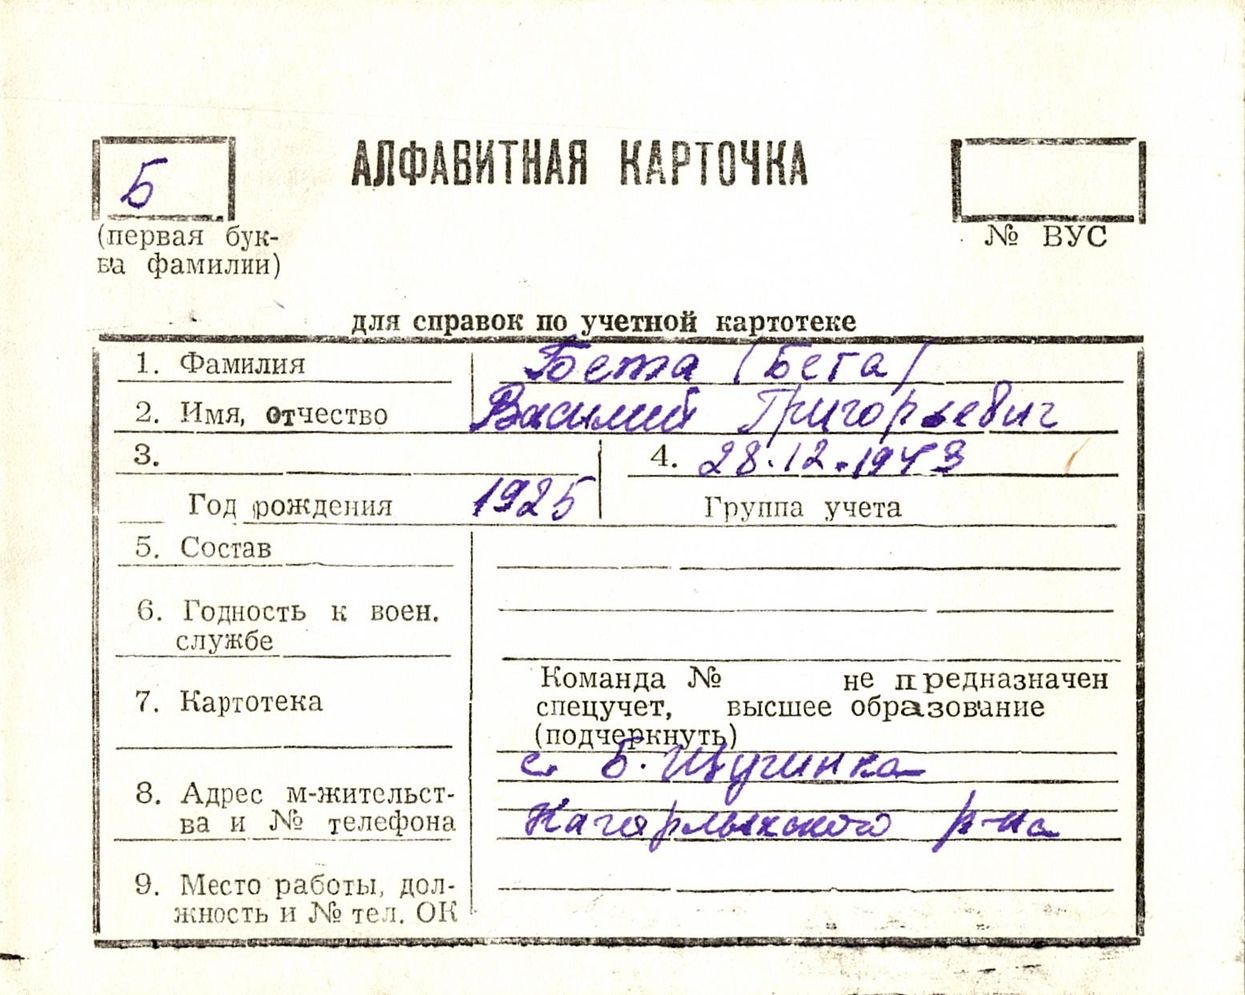 Б
АЛФАВИТНАЯ КАРТОЧКА
(первая бук-
ва фамилии)
№ ВУС
для справок по учетной картотеке
1. Фамилия Бета (Бега)
2. Имя, отчество Василий Григорьевич
3. 4. 28.12.1943
Год рождения 1925 Группа учета
5. Состав
6. Годность к воен.
службе
7. Картотека
Команда № не предназначен
спецучет, высшее образование
(подчеркнуть)
с. Б. Щучинка
8. Адрес м-жительст-
ва и № телефона Кагарлыкского р-на
9. Место работы, дол-
жность и № тел. ОК